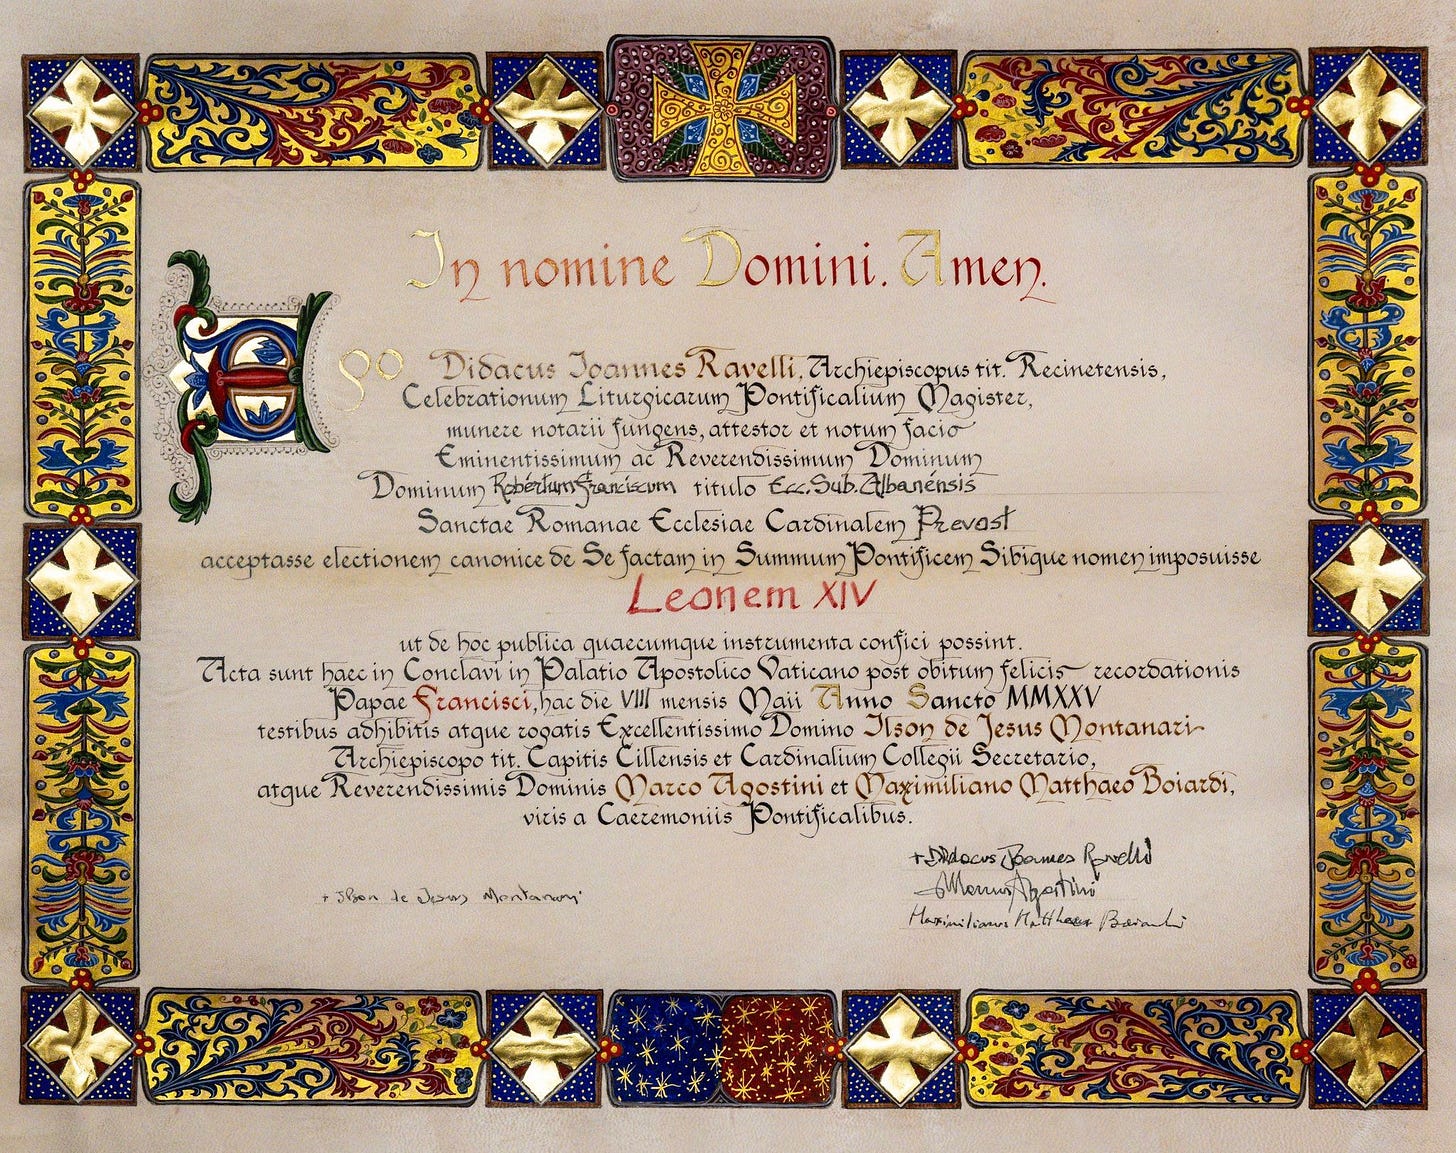 In nomine Domini. Amen.
Ego Didacus Ioannes Ravelli, Archiepiscopus tit. Recinetensis,
Celebrationum Liturgicarum Pontificalium Magister,
munere notarii fungens, attestor et notum facio
Eminentissimum ac Reverendissimum Dominum
Dominum Robértum Franciscum titulo Ecc. Sub. Albanénsis
Sanctae Romanae Ecclesiae Cardinalem Prevost
acceptasse electionem canonice de Se factam in Summum Pontificem Sibique nomen imposuisse
Leonem XIV
ut de hoc publica quaecumque instrumenta confici possint.
Acta sunt haec in Conclavi in Palatio Apostolico Vaticano post obitum felicis recordationis
Papae Francisci, hac die VIII mensis Maii Anno Sancto MMXXV
testibus adhibitis atque rogatis Excellentissimo Domino Ilson de Jesus Montanari
Archiepiscopo tit. Capitis Cillensis et Cardinalium Collegii Secretario,
atque Reverendissimis Dominis Marco Agostini et Maximiliano Matthaeo Boiardi,
viris a Caeremoniis Pontificalibus.
+ Didacus Joannes Ravelli
Marcus Agostini
+ Ilson de Jesus Montanari
Maximilianus Matthaeus Boiardi